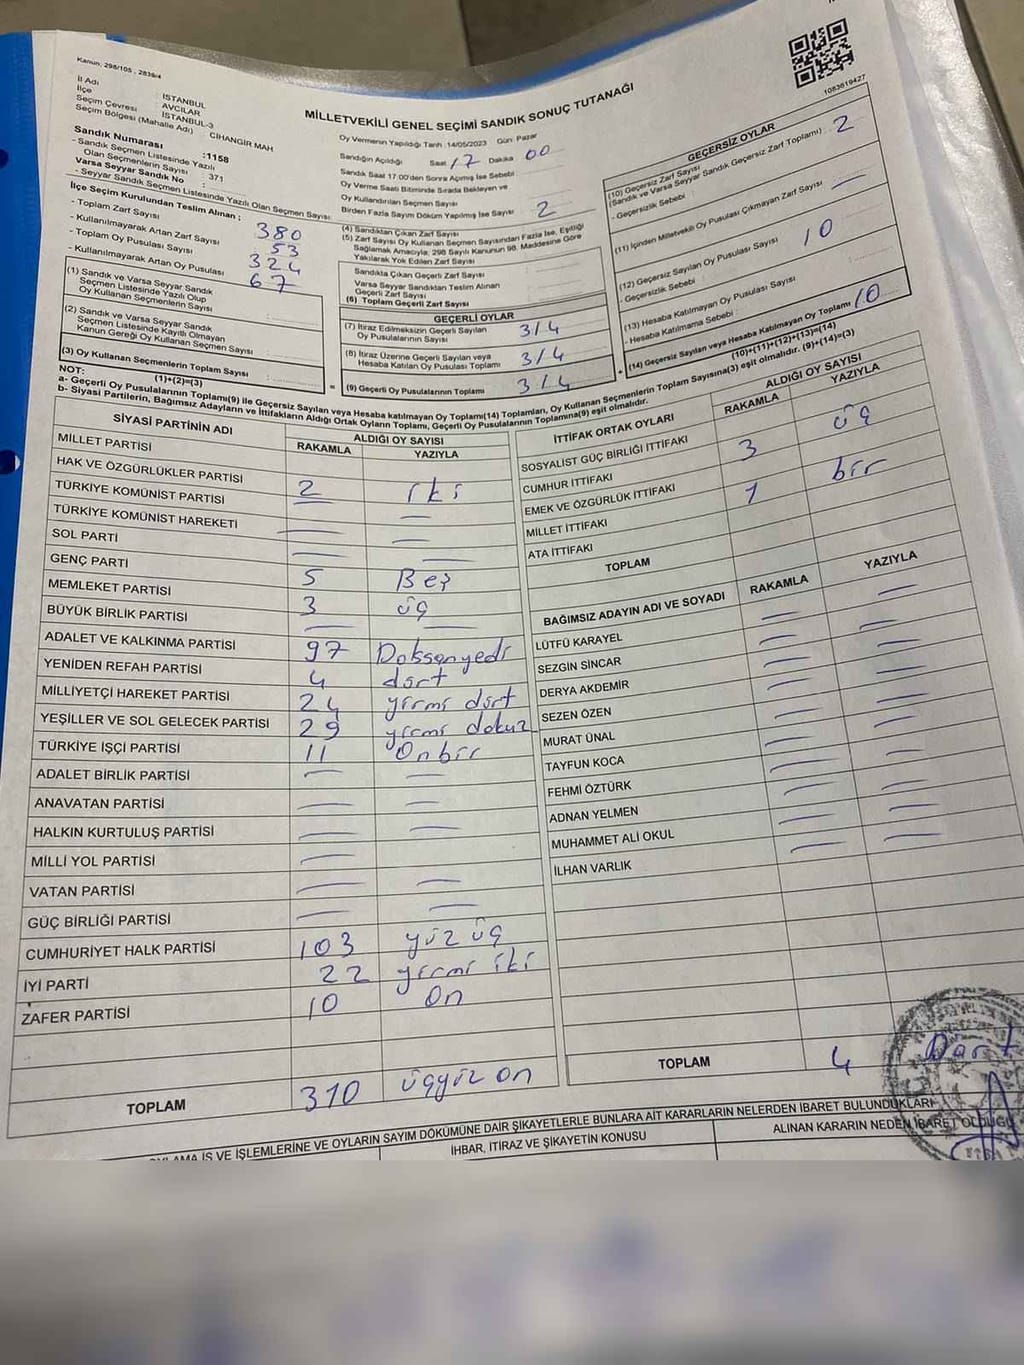 Kanun: 298/105 , 2839/4
İl Adı : İSTANBUL
İlçe : AVCILAR
Seçim Çevresi : İSTANBUL-3
Seçim Bölgesi (Mahalle Adı) CİHANGİR MAH
MİLLETVEKİLİ GENEL SEÇİMİ SANDIK SONUÇ TUTANAĞI
1083619427
Sandık Numarası :1158
- Sandık Seçmen Listesinde Yazılı
Olan Seçmenlerin Sayısı : 371
Varsa Seyyar Sandık No :
- Seyyar Sandık Seçmen Listesinde Yazılı Olan Seçmen Sayısı :
İlçe Seçim Kurulundan Teslim Alınan ;
- Toplam Zarf Sayısı 380
- Kullanılmayarak Artan Zarf Sayısı 53
- Toplam Oy Pusulası Sayısı 324
- Kullanılmayarak Artan Oy Pusulası 67
(1) Sandık ve Varsa Seyyar Sandık
Seçmen Listesinde Yazılı Olup
Oy Kullanan Seçmenlerin Sayısı :
(2) Sandık ve Varsa Seyyar Sandık
Seçmen Listesinde Kayıtlı Olmayan
Kanun Gereği Oy Kullanan Seçmen Sayısı :
(3) Oy Kullanan Seçmenlerin Toplam Sayısı :
(1)+(2)=(3)
Oy Vermenin Yapıldığı Tarih :14/05/2023 Gün: Pazar
Sandığın Açıldığı Saat 17 Dakika 00
Sandık Saat 17:00'den Sonra Açılmış İse Sebebi
Oy Verme Saati Bitiminde Sırada Bekleyen ve
Oy Kullandırılan Seçmen Sayısı
Birden Fazla Sayım Döküm Yapılmış İse Sayısı 2
(4) Sandıktan Çıkan Zarf Sayısı
(5) Zarf Sayısı Oy Kullanan Seçmen Sayısından Fazla İse, Eşitliği
Sağlamak Amacıyla, 298 Sayılı Kanunun 98. Maddesine Göre
Yakılarak Yok Edilen Zarf Sayısı
Sandıkta Çıkan Geçerli Zarf Sayısı
Varsa Seyyar Sandıktan Teslim Alınan
Geçerli Zarf Sayısı
(6) Toplam Geçerli Zarf Sayısı
GEÇERLİ OYLAR
(7) İtiraz Edilmeksizin Geçerli Sayılan
Oy Pusulalarının Sayısı 314
(8) İtiraz Üzerine Geçerli Sayılan veya
Hesaba Katılan Oy Pusulası Toplamı 314
(9) Geçerli Oy Pusulalarının Toplamı 314
GEÇERSİZ OYLAR
(10) Geçersiz Zarf Sayısı
(Sandık ve Varsa Seyyar Sandık Geçersiz Zarf Toplamı) 2
- Geçersizlik Sebebi
(11) İçinden Milletvekili Oy Pusulası Çıkmayan Zarf Sayısı —
(12) Geçersiz Sayılan Oy Pusulası Sayısı 10
- Geçersizlik Sebebi :
(13) Hesaba Katılmayan Oy Pusulası Sayısı
- Hesaba Katılmama Sebebi :
(14) Geçersiz Sayılan veya Hesaba Katılmayan Oy Toplamı 10
(10)+(11)+(12)+(13)=(14)
NOT:
a- Geçerli Oy Pusulalarının Toplamı(9) ile Geçersiz Sayılan veya Hesaba katılmayan Oy Toplamı(14) Toplamları, Oy Kullanan Seçmenlerin Toplam Sayısına(3) eşit olmalıdır. (9)+(14)=(3)
b- Siyasi Partilerin, Bağımsız Adayların ve İttifakların Aldığı Ortak Oyların Toplamı, Geçerli Oy Pusulalarının Toplamına(9) eşit olmalıdır.
SİYASİ PARTİNİN ADI ALDIĞI OY SAYISI
RAKAMLA YAZIYLA
MİLLET PARTİSİ
HAK VE ÖZGÜRLÜKLER PARTİSİ
TÜRKİYE KOMÜNİST PARTİSİ 2 iki
TÜRKİYE KOMÜNİST HAREKETİ — —
SOL PARTİ — —
GENÇ PARTİ — —
MEMLEKET PARTİSİ 5 Beş
BÜYÜK BİRLİK PARTİSİ 3 üç
— —
ADALET VE KALKINMA PARTİSİ 97 Doksanyedi
YENİDEN REFAH PARTİSİ 4 dört
MİLLİYETÇİ HAREKET PARTİSİ 24 yirmi dört
YEŞİLLER VE SOL GELECEK PARTİSİ 29 yirmi dokuz
TÜRKİYE İŞÇİ PARTİSİ 11 Onbir
ADALET BİRLİK PARTİSİ — —
ANAVATAN PARTİSİ — —
HALKIN KURTULUŞ PARTİSİ — —
MİLLİ YOL PARTİSİ —
VATAN PARTİSİ — —
GÜÇ BİRLİĞİ PARTİSİ — —
CUMHURİYET HALK PARTİSİ 103 yüz üç
İYİ PARTİ 22 yirmi iki
ZAFER PARTİSİ 10 On
TOPLAM 310 üçyüz on
İTTİFAK ORTAK OYLARI ALDIĞI OY SAYISI
RAKAMLA YAZIYLA
SOSYALİST GÜÇ BİRLİĞİ İTTİFAKI
CUMHUR İTTİFAKI 3 üç
EMEK VE ÖZGÜRLÜK İTTİFAKI
MİLLET İTTİFAKI 1 bir
ATA İTTİFAKI
TOPLAM
BAĞIMSIZ ADAYIN ADI VE SOYADI RAKAMLA YAZIYLA
LÜTFÜ KARAYEL — —
SEZGİN SİNCAR — —
DERYA AKDEMİR — —
SEZEN ÖZEN — —
MURAT ÜNAL — —
TAYFUN KOCA — —
FEHMİ ÖZTÜRK — —
ADNAN YELMEN — —
MUHAMMET ALİ OKUL — —
İLHAN VARLIK — —
TOPLAM 4 Dört
İŞ VE İŞLEMLERİNE VE OYLARIN SAYIM DÖKÜMÜNE DAİR ŞİKAYETLERLE BUNLARA AİT KARARLARIN NELERDEN İBARET BULUNDUKLARI
İHBAR, İTİRAZ VE ŞİKAYETİN KONUSU
ALINAN KARARIN NEDEN İBARET OLDUĞU